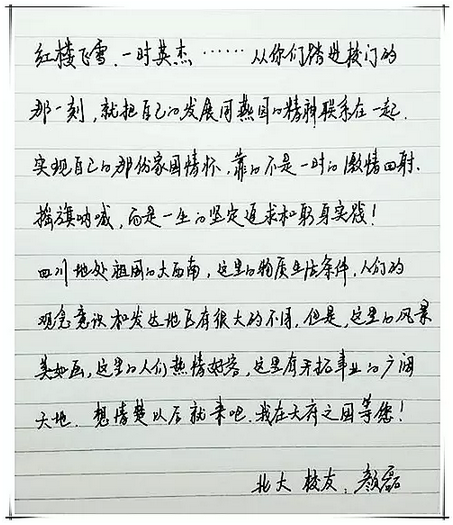 红楼飞雪，一时英杰……从你们踏进校门的
那一刻，就把自己的发展同燕园的精神联系在一起。
实现自己的那份家国情怀，靠的不是一时的激情四射，
摇旗呐喊，而是一生的坚定追求和躬身实践！
四川地处祖国的大西南，这里的物质生活条件，人们的
观念意识和发达地区有很大的不同，但是，这里的风景
美如画，这里的人们热情好客，这里有开拓事业的广阔
天地。想清楚以后就来吧，我在天府之国等您！
北大校友，颜磊